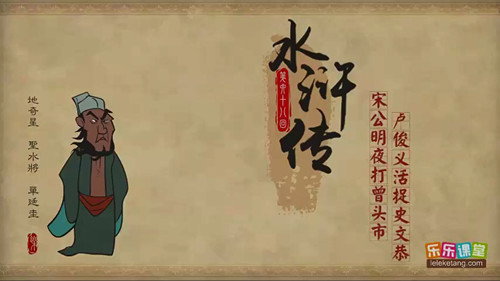 水浒传
第六十八回
宋公明夜打曾头市
卢俊义活捉史文恭
地奇星 聖水將 單廷圭
乐乐课堂
leleketang.com